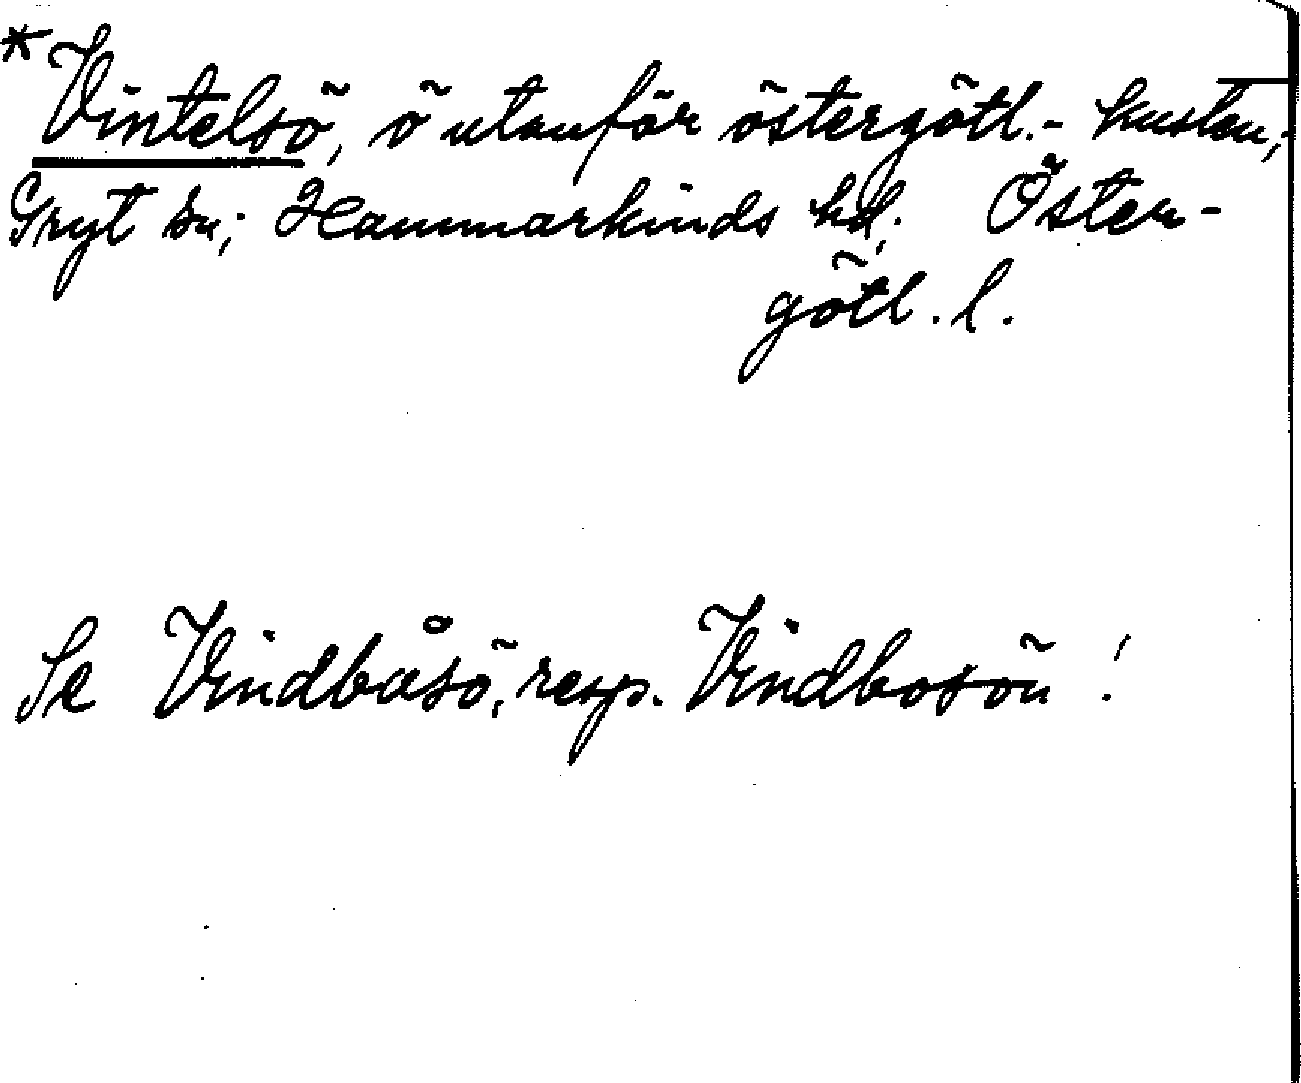 *Vintelsö, ö utanför östergötl.- kusten,;
Gryt sn; Hammarkinds hd; Öster-
götl. l.
Se Vindbåsö, resp. Vindbosön !